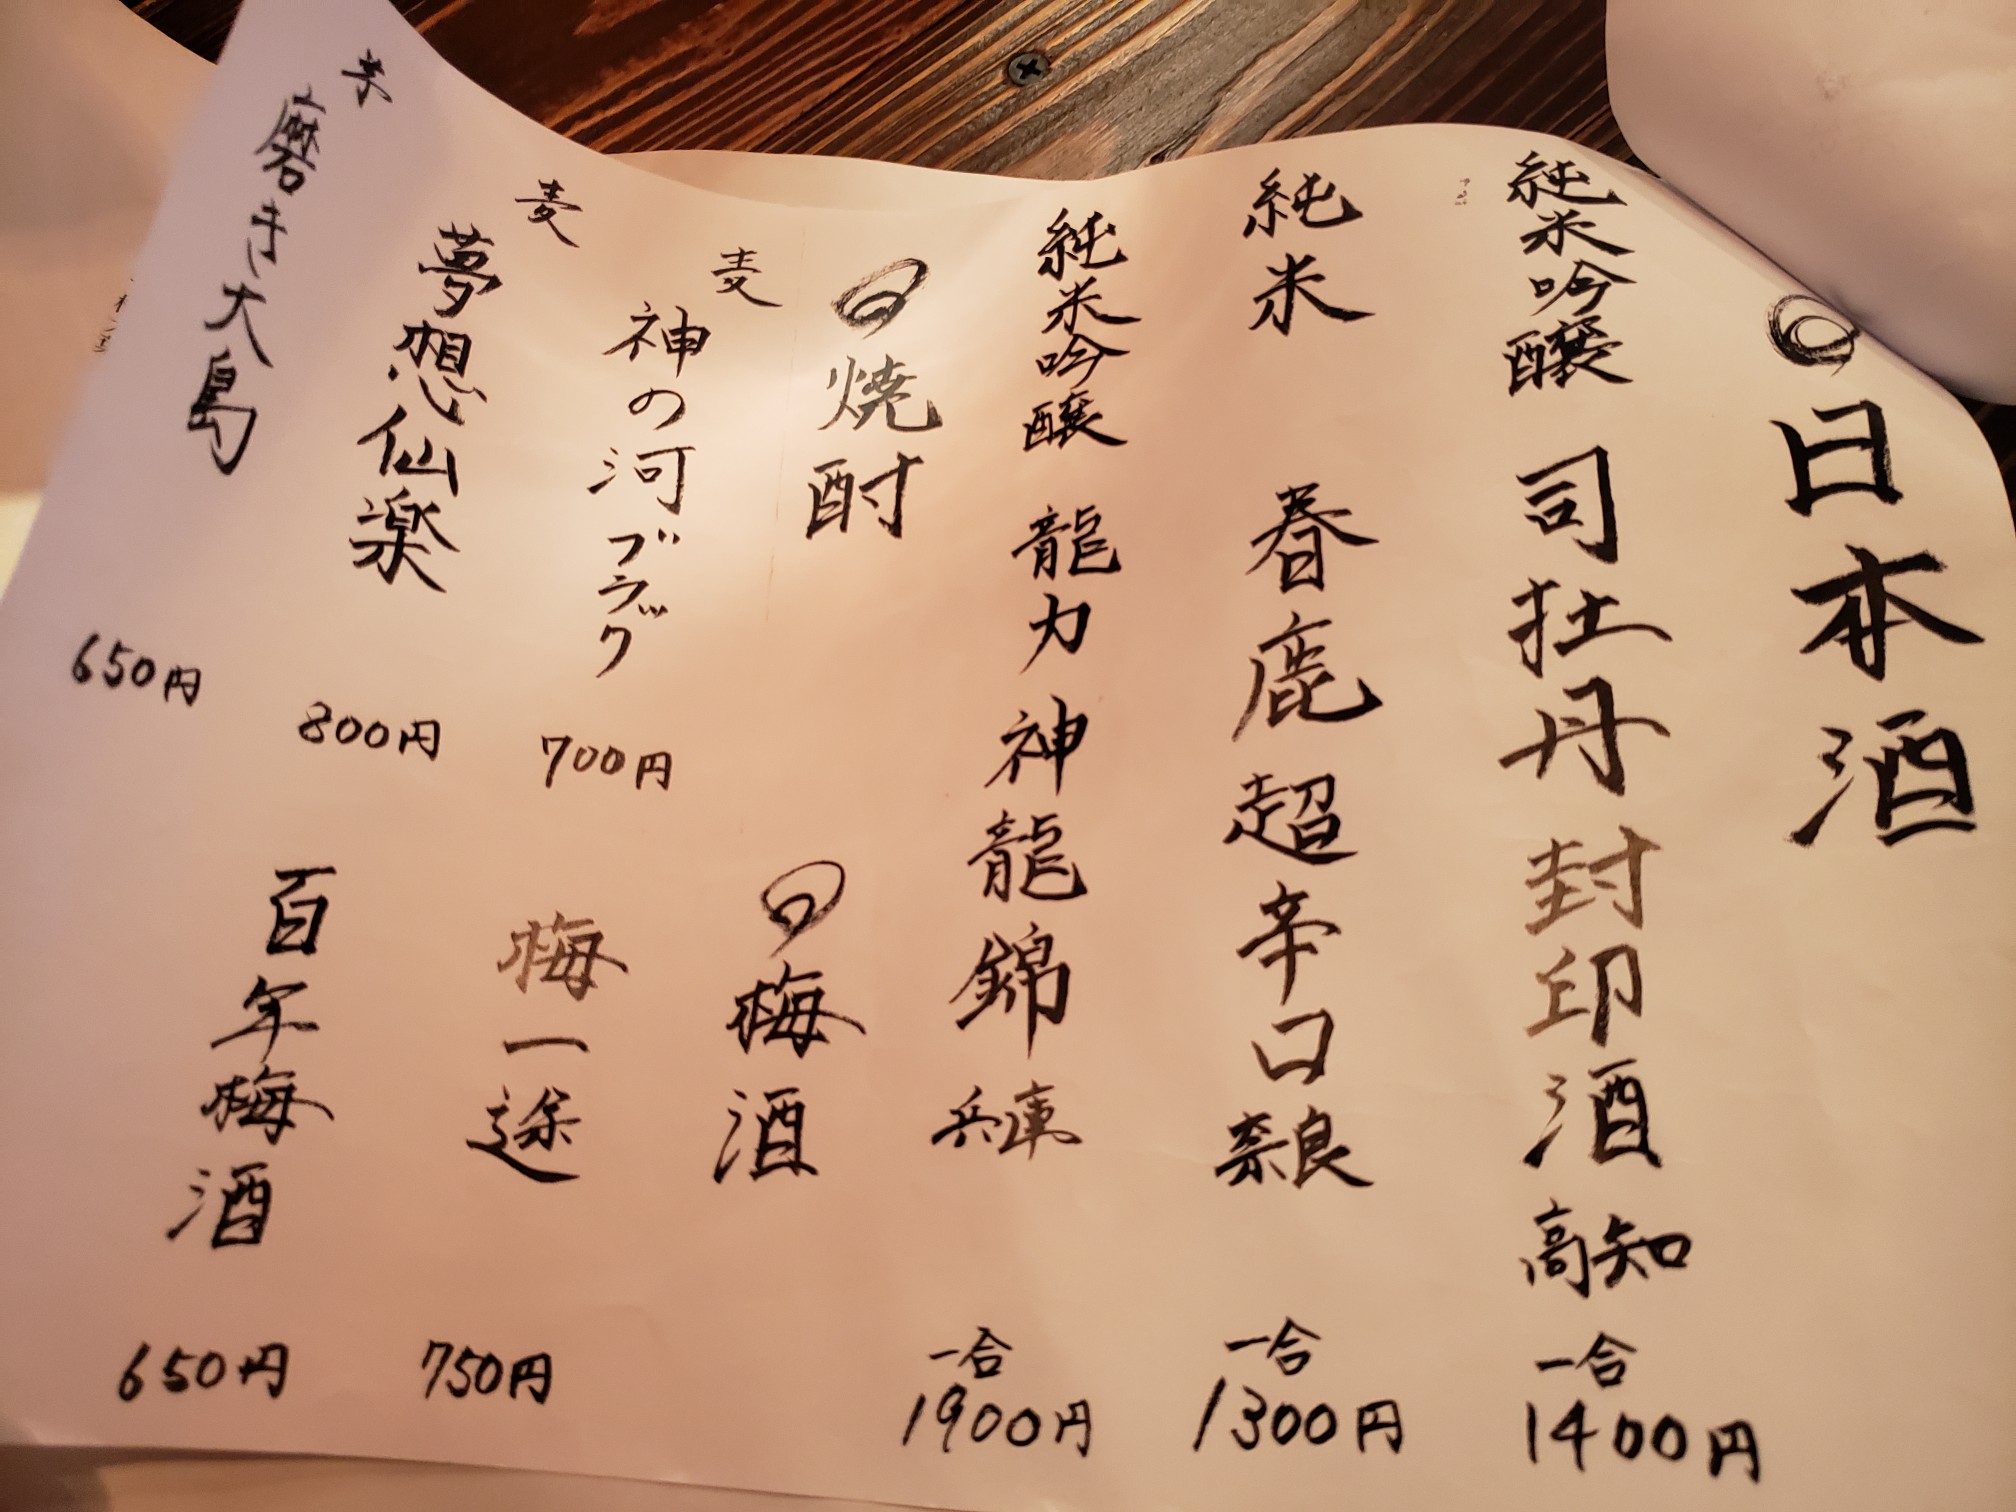 ◎日本酒
純米吟醸 司牡丹 封印酒 高知 一合 1400円
純米 春鹿 超辛口 奈良 一合 1300円
純米吟醸 龍力 神龍錦 兵庫 一合 1900円
◎焼酎
麦 神の河ブラック 700円
麦 夢想仙楽 800円
米 磨き大島 650円
◎梅酒
梅一途 750円
百年梅酒 650円